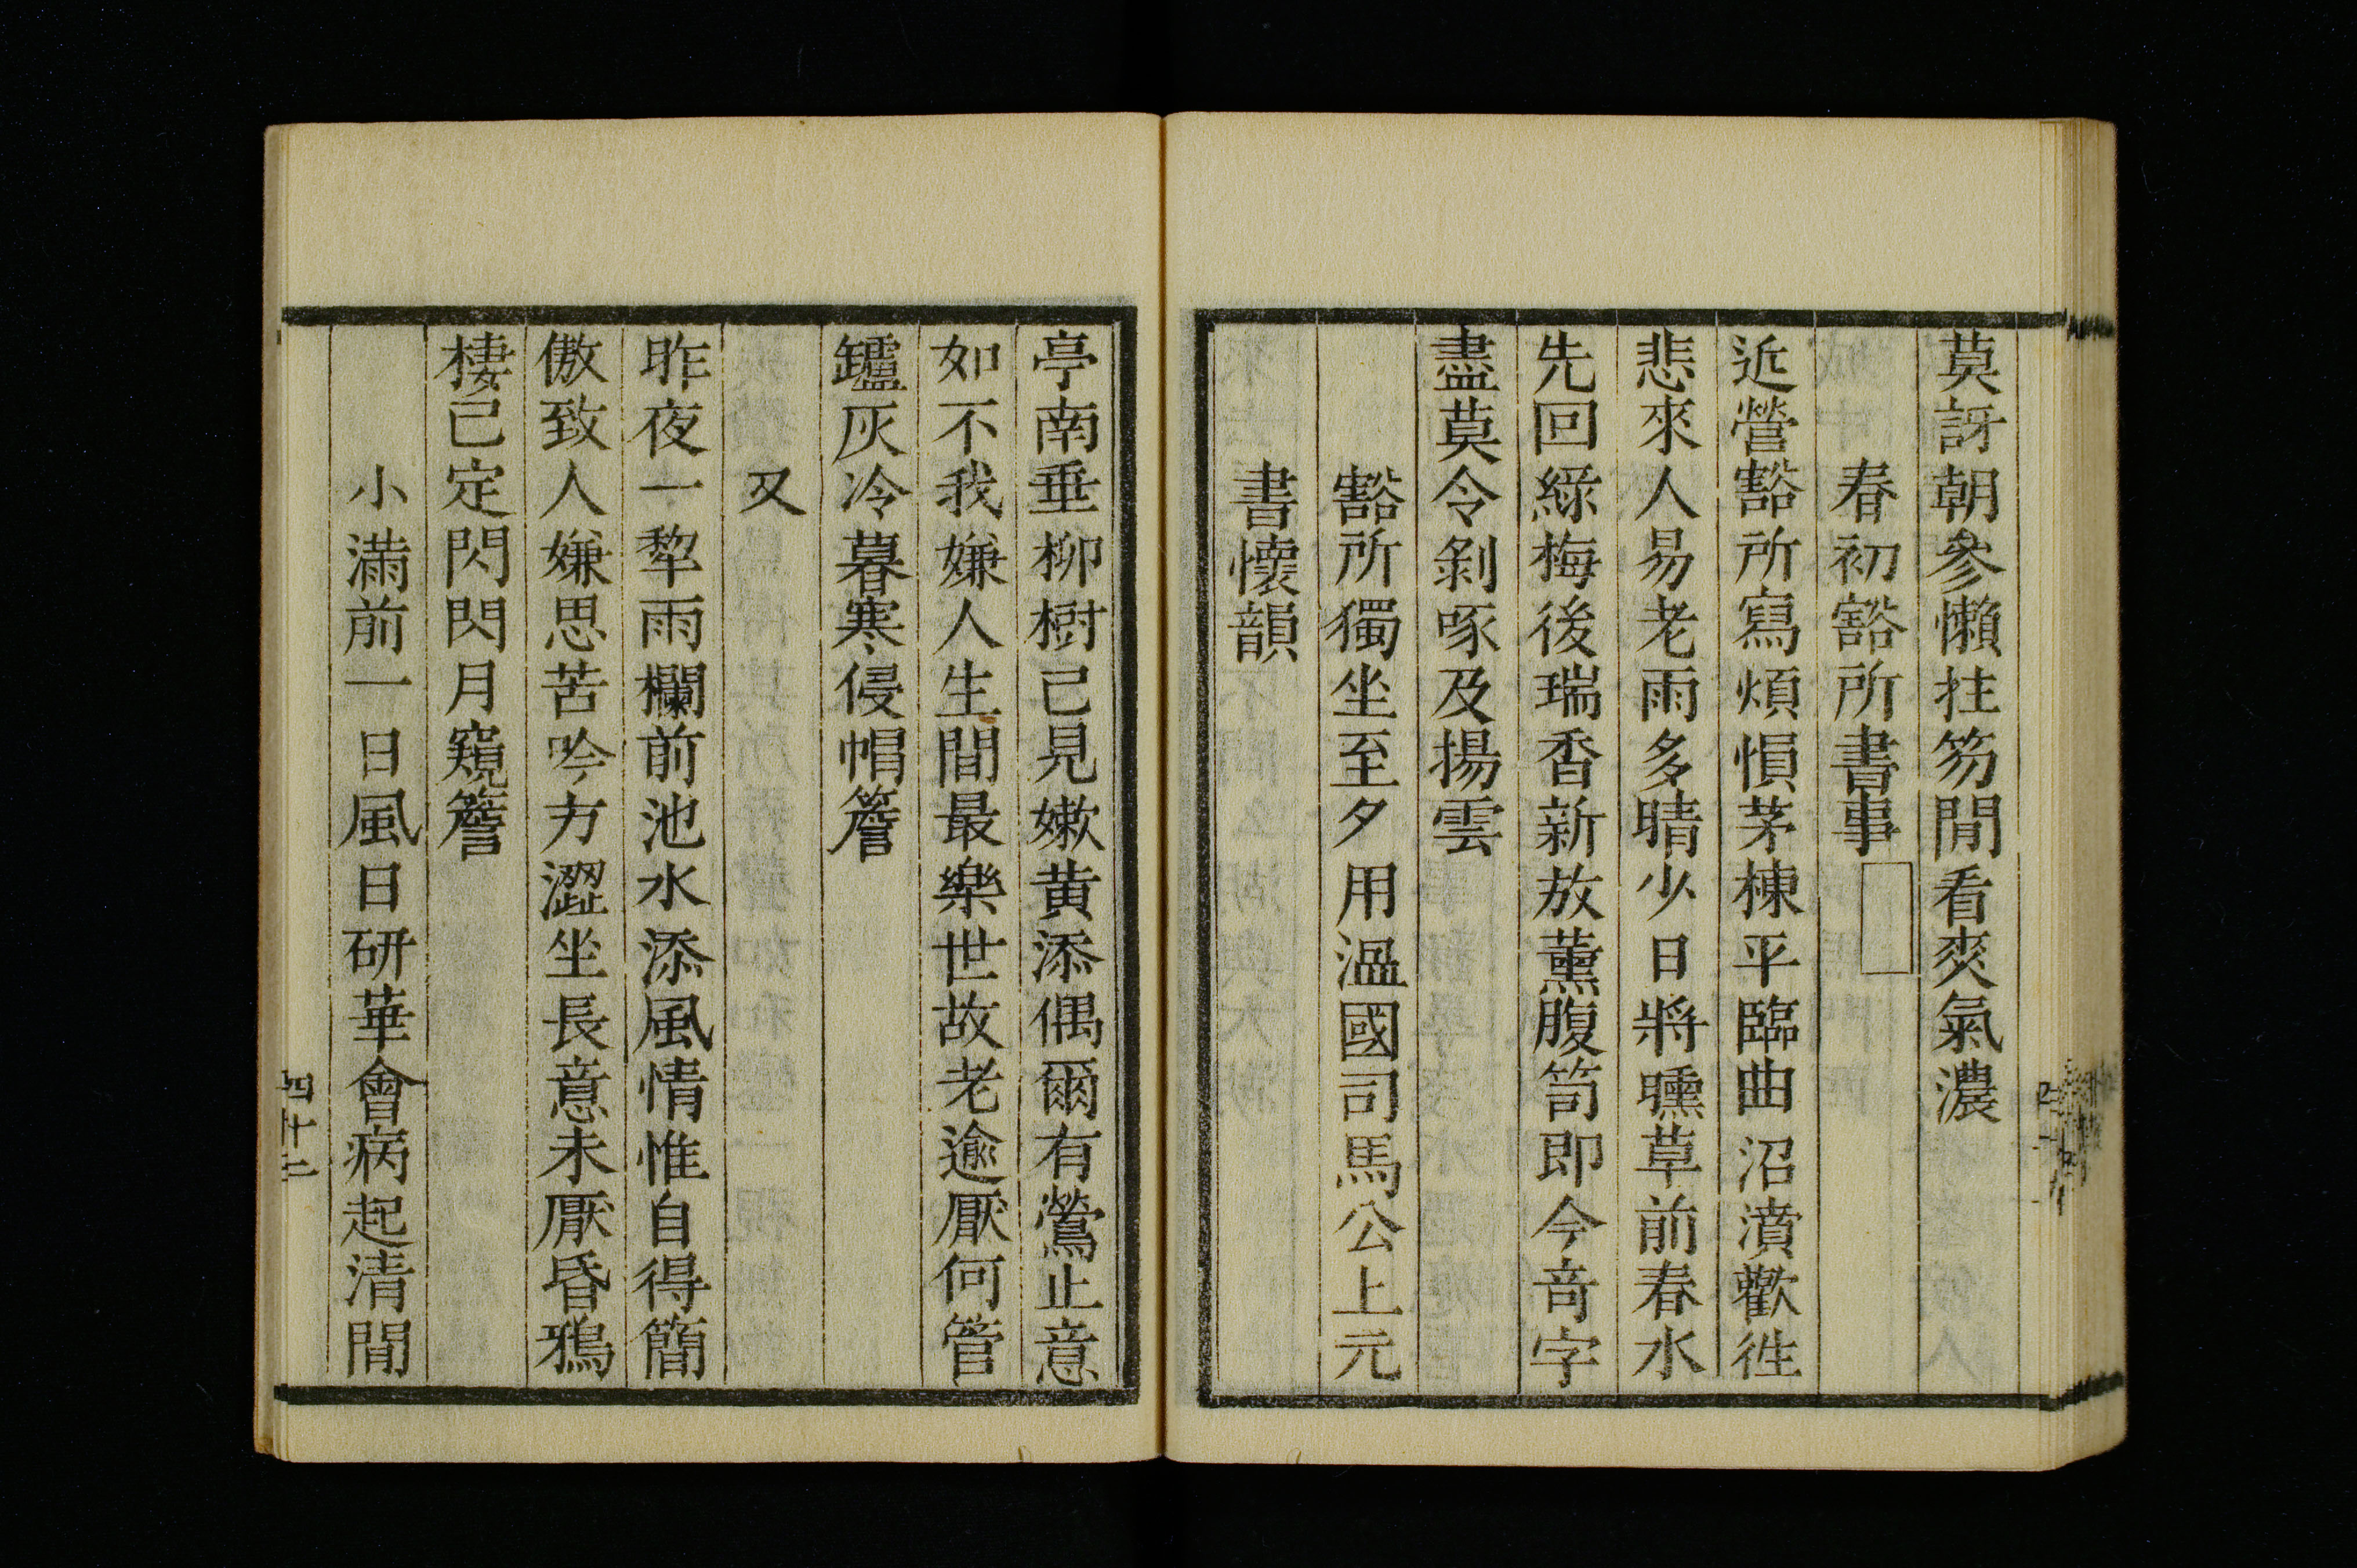 莫訝朝參懶拄笏閒看爽氣濃
春初豁所書事
近營豁所寫煩惧茅棟平臨曲沼濆歡徃
悲來人易老雨多晴少日將曛草前春水
先回綠梅後瑞香新放薰腹笥即今奇字
盡莫令剝啄及揚雲
豁所獨坐至夕用溫國司馬公上元
書懷韻
亭南垂柳樹已見嫰黃添偶爾有鶯止意
如不我嫌人生間最樂世故老逾厭何管
鑪灰冷暮寒侵帽簷
又
昨夜一犂雨欄前池水添風情惟自得簡
傲致人嫌思苦吟方澀坐長意未厭昏鴉
棲已定閃閃月窺簷
小滿前一日風日研華會病起清間
四十二